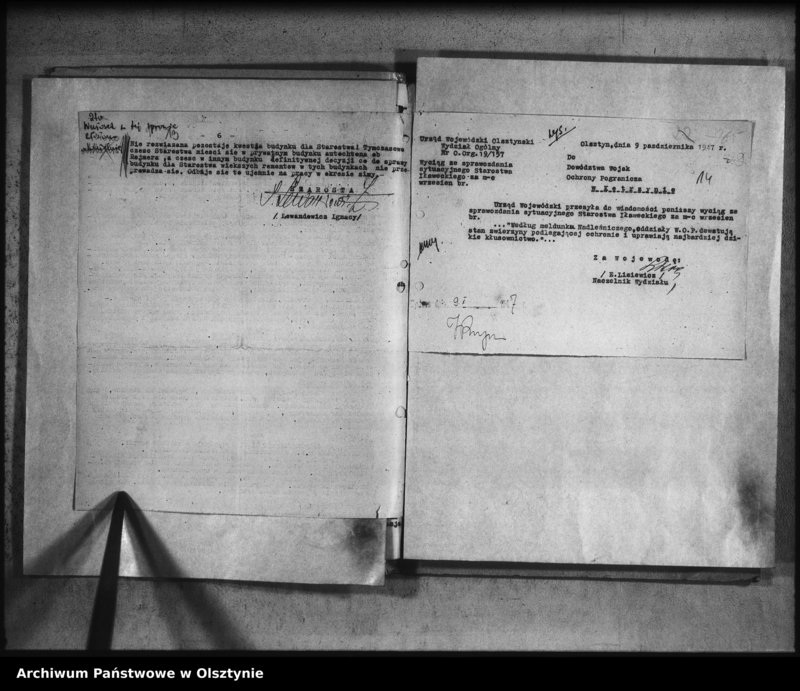 - 6 -
Nie rozwiązana pozostaje kwestia budynku dla Starostwa. Tymczasowo
część Starostwa mieści się w prywatnym budynku autochtona ob
Rejzera, a część w innym budynku definitywnej decyzji co do sprawy
budynku dla Starostwa większych remontów w tych budynkach nie prze-
prowadza się. Odbije się to ujemnie na pracy w okresie zimy.
STAROSTA
/ Lewandowicz Ignacy/
Urząd Wojewódzki Olsztyński
Wydział Ogólny
Nr O.Org.19/157
Olsztyn, dnia 9 października 1947 r.
Wyciąg ze sprawozdania
sytuacyjnego Starostwa
Iławeckiego za m-c
wrzesień br.
Do
Dowództwa Wojsk
Ochrony Pogranicza
14
w Kętrzynie
Urząd Wojewódzki przesyła do wiadomości poniższy wyciąg ze
sprawozdania sytuacyjnego Starostwa Iławeckiego za m-c wrzesień
br.
..."Według meldunku Nadleśniczego, oddziały W.O.P. dewastują
stan zwierzyny podlegającej ochronie i uprawiają najbardziej dzi-
kie kłusownictwo."...
Za Wojewodę:
/ E.Lisiewicz /
Naczelnik Wydziału
Archiwum Państwowe w Olsztynie